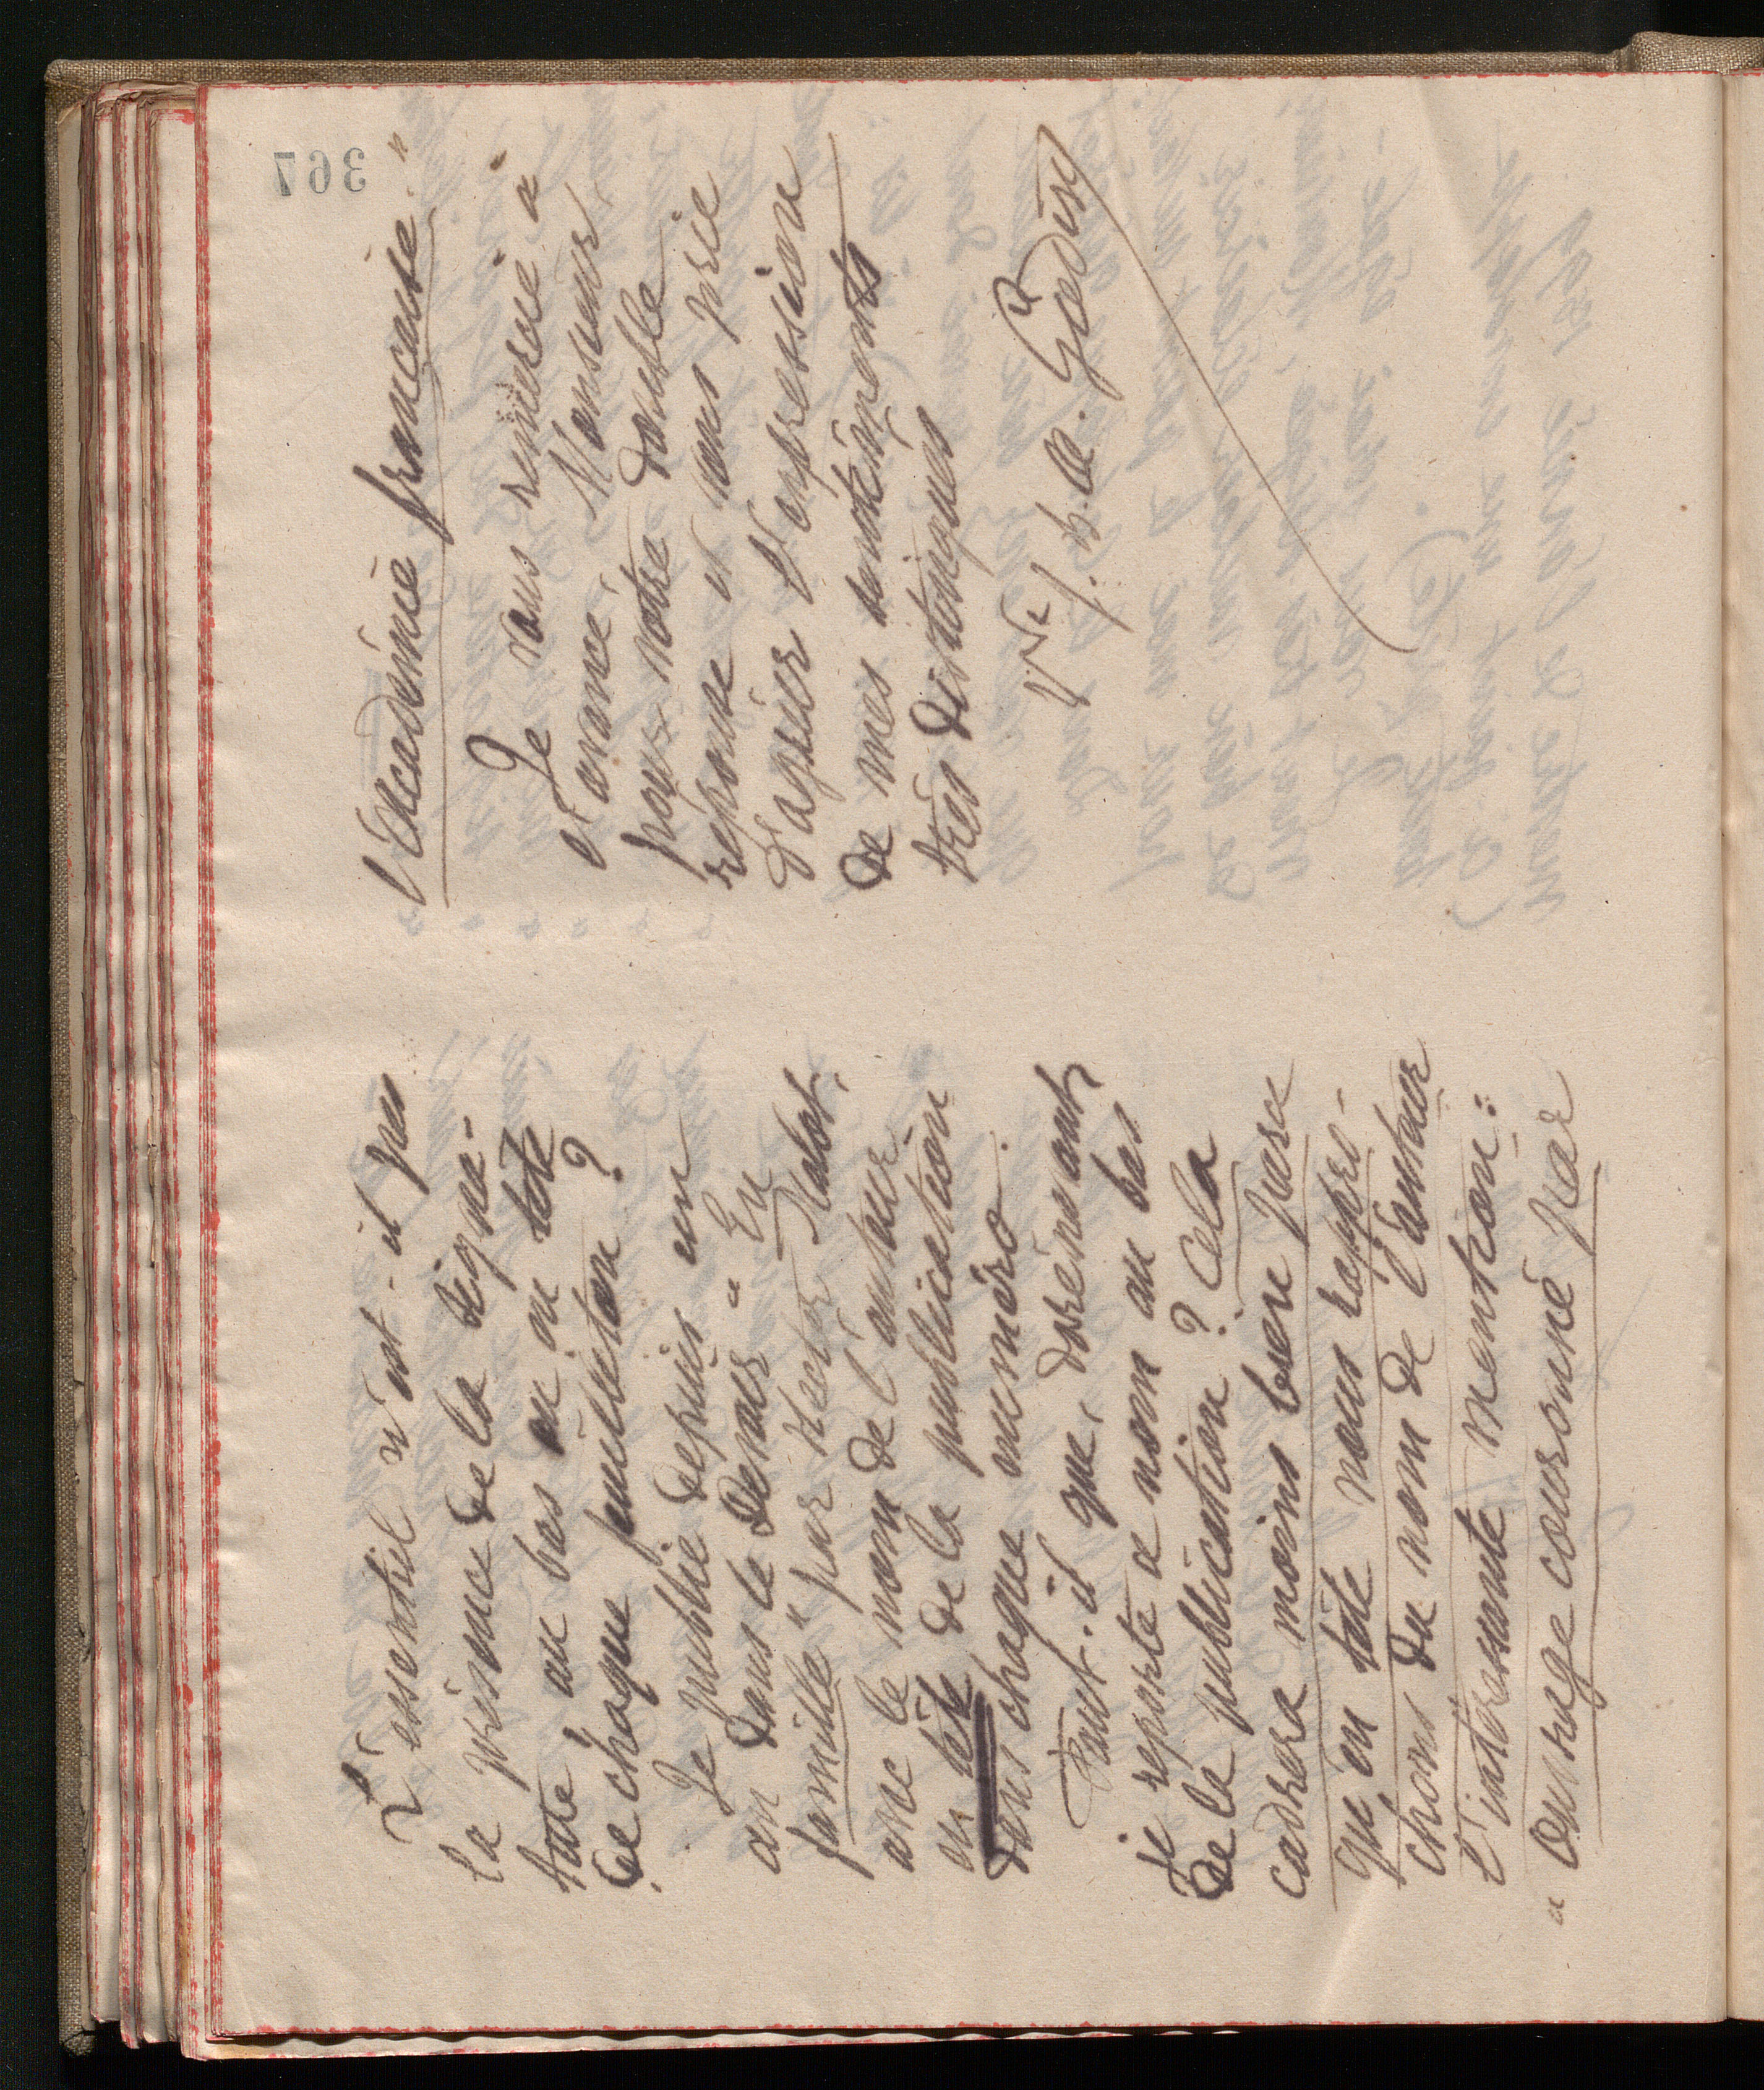 L'essentiel n'est-il pas
la présence de la signa-
ture au bas ou en tête
de chaque feuilleton ?
Je publie depuis un
an dans le Devoir "En
famille" par Hector Malot,
avec le nom de l'auteur
en tête de la publication
dans chaque numéro.
Faut-il que, dorénavant,
je reporte ce nom au bas
de la publication ? Cela
cadrera moins bien parce
qu'en tête nous rappro-
chons du nom de l'auteur
l'intéressante mention :
" Ouvrage couronné par
l'Académie française. "
Je vous remercie à
l'avance, Monsieur,
pour votre double
réponse et vous prie
d'agréer l'expression
de mes sentiments
très distingués
Vve J. B. A. Godin
367